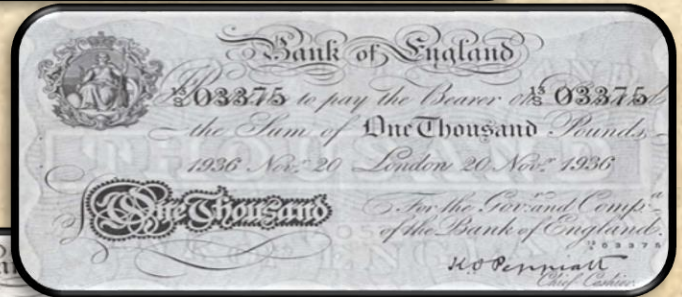 Bank of England
03375 to pay the Bearer on 03375
the Sum of One Thousand Pounds
1936 Nov.r 20 London 20 Nov.r 1936
THOUSAND
One Thousand
For the Gov.r and Comp.a
of the Bank of England.
03375
K O Peppiatt
Chief Cashier